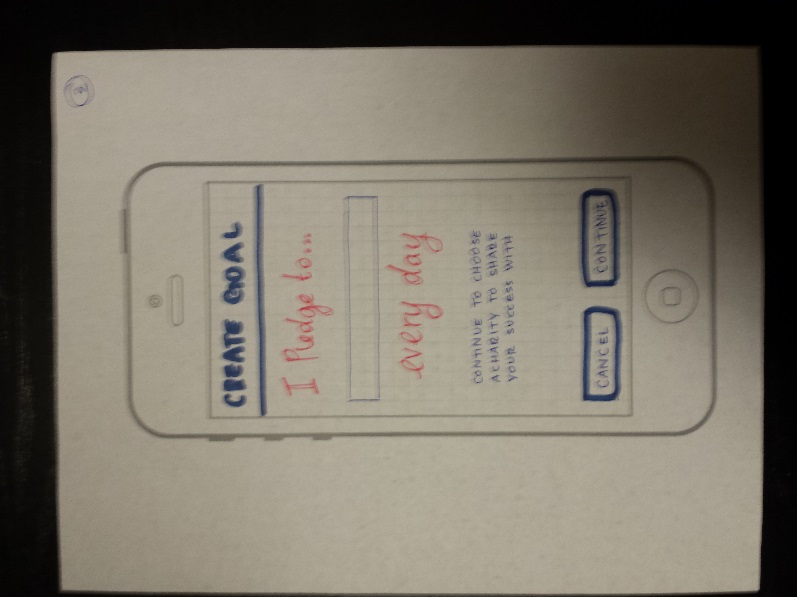 2
CREATE GOAL
I Pledge to...
every day
CONTINUE TO CHOOSE
A CHARITY TO SHARE
YOUR SUCCESS WITH
CANCEL CONTINUE